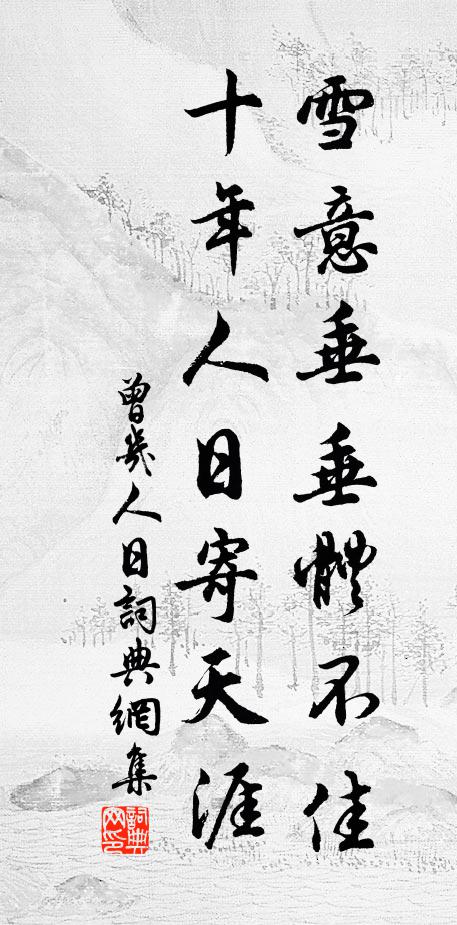 雪意垂垂體不佳
十年人日寄天涯
曾幾人日詞典網集
詞典網印